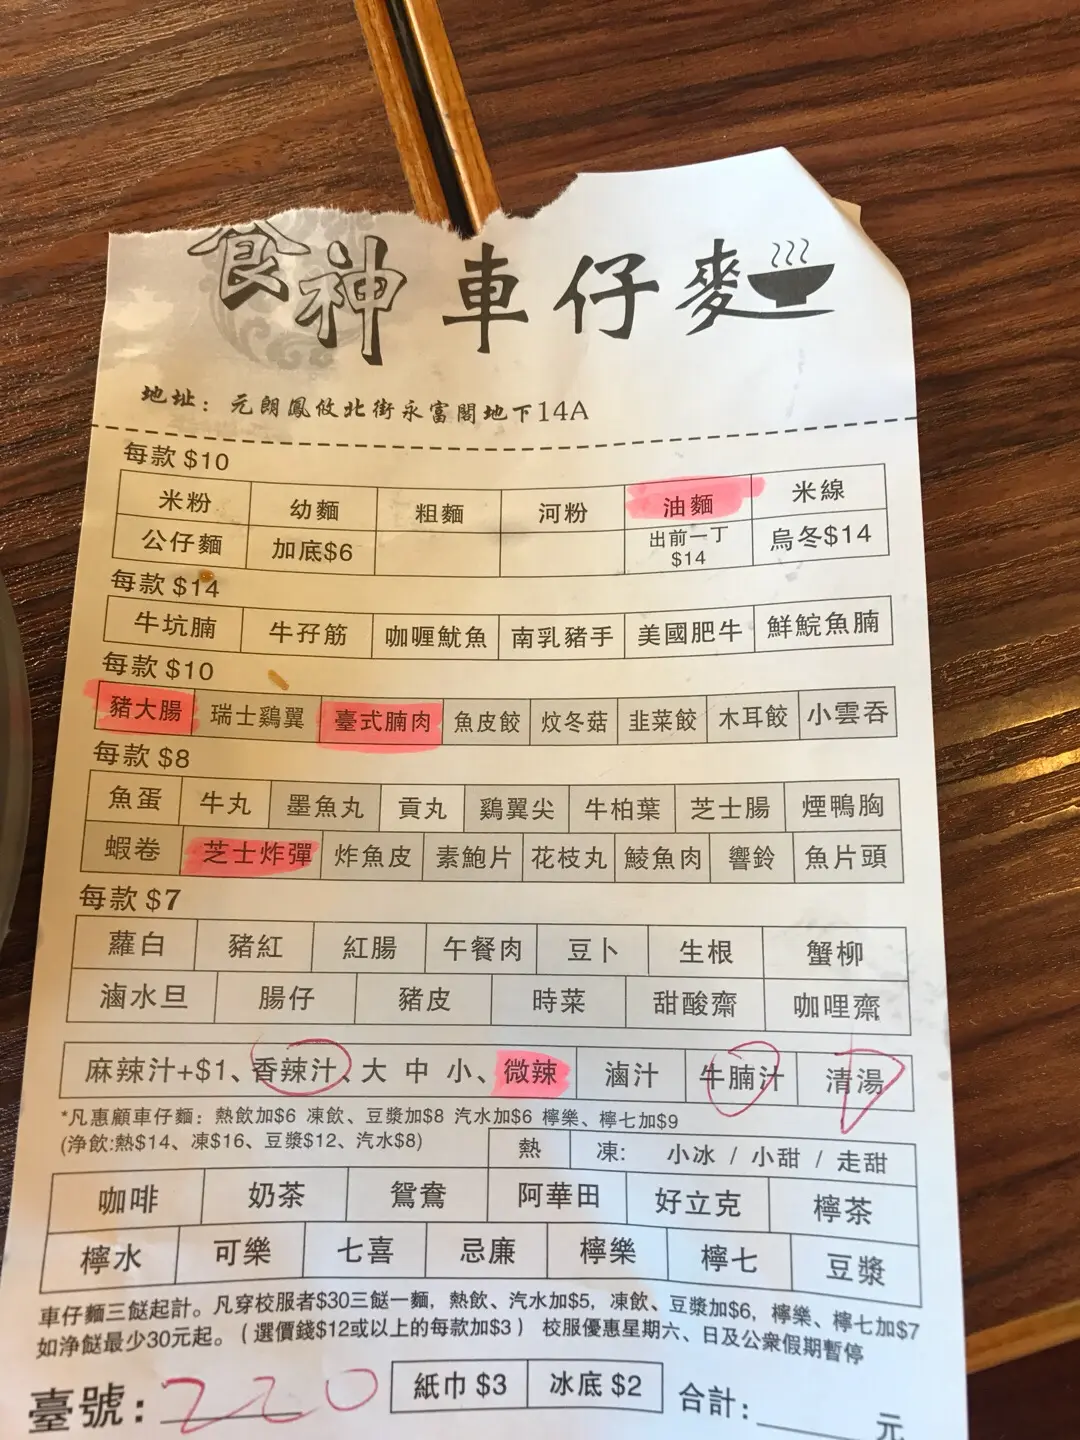 食神 車仔麥
地址：元朗鳳攸北街永富閣地下14A
每款 $10
米粉 幼麵 粗麵 河粉 油麵 米線
公仔麵 加底$6 出前一丁 $14 烏冬$14
每款 $14
牛坑腩 牛孖筋 咖喱魷魚 南乳豬手 美國肥牛 鮮鯇魚腩
每款 $10
豬大腸 瑞士鷄翼 臺式腩肉 魚皮餃 炆冬菇 韭菜餃 木耳餃 小雲吞
每款 $8
魚蛋 牛丸 墨魚丸 貢丸 鷄翼尖 牛柏葉 芝士腸 煙鴨胸
蝦卷 芝士炸彈 炸魚皮 素鮑片 花枝丸 鯪魚肉 響鈴 魚片頭
每款 $7
蘿白 豬紅 紅腸 午餐肉 豆卜 生根 蟹柳
滷水旦 腸仔 豬皮 時菜 甜酸齋 咖哩齋
麻辣汁+$1、香辣汁、大 中 小、微辣 滷汁 牛腩汁 清湯
*凡惠顧車仔麵：熱飲加$6 凍飲、豆漿加$8 汽水加$6 檸樂、檸七加$9
(净飲:熱$14、凍$16、豆漿$12、汽水$8) 熱 凍: 小冰 / 小甜 / 走甜
咖啡 奶茶 鴛鴦 阿華田 好立克 檸茶
檸水 可樂 七喜 忌廉 檸樂 檸七 豆漿
車仔麵三餸起計。凡穿校服者$30三餸一麵，熱飲、汽水加$5，凍飲、豆漿加$6，檸樂、檸七加$7
如净餸最少30元起。（選價錢$12或以上的每款加$3） 校服優惠星期六、日及公衆假期暫停
臺號：220 紙巾 $3 冰底 $2 合計：元